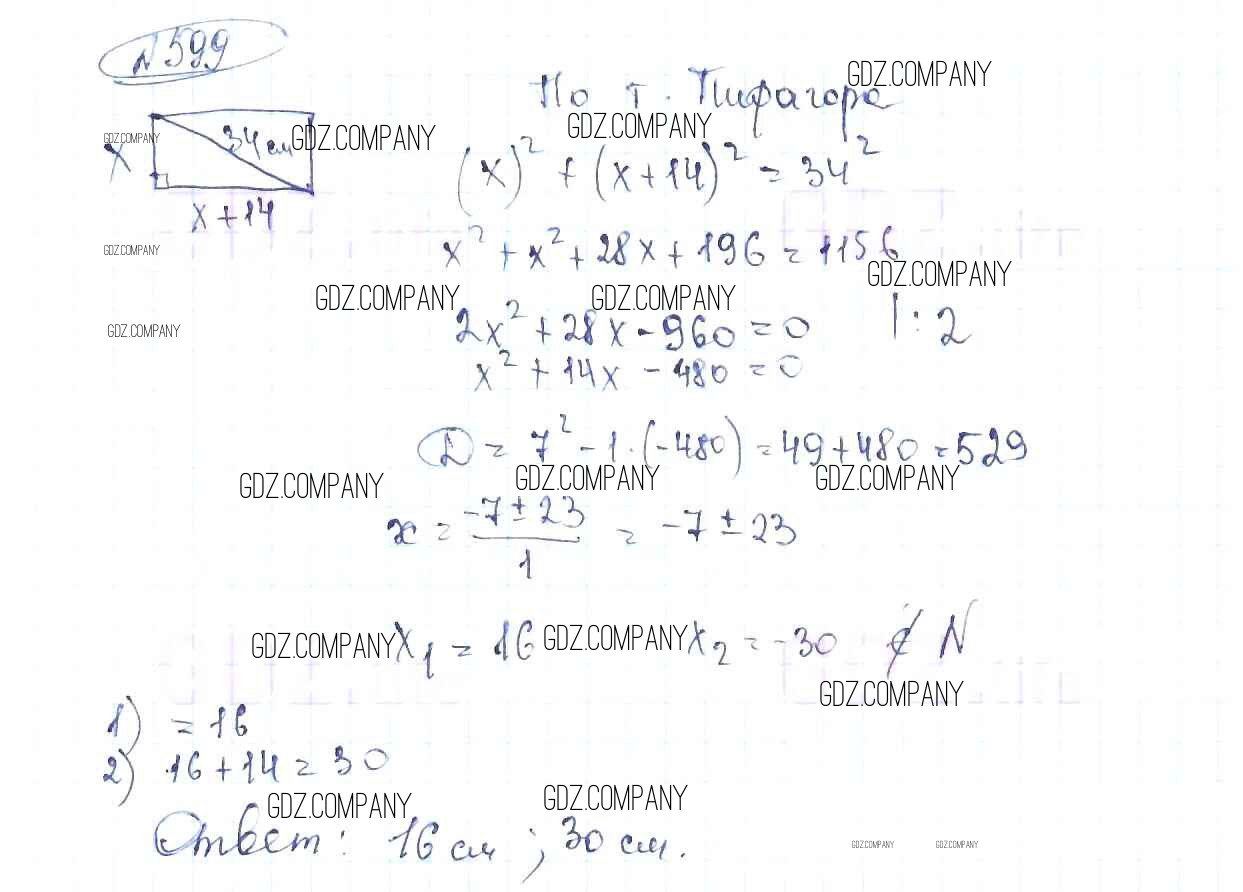 N 599
По т. Пифагора GDZ.COMPANY
GDZ.COMPANY 34 см GDZ.COMPANY GDZ.COMPANY
x
(x)² + (x+14)² = 34²
x+14
GDZ.COMPANY x² + x² + 28x + 196 = 1156
GDZ.COMPANY
GDZ.COMPANY GDZ.COMPANY
GDZ.COMPANY 2x² + 28x - 960 = 0 | : 2
x² + 14x - 480 = 0
D = 7² - 1 · (-480) = 49 + 480 = 529
GDZ.COMPANY GDZ.COMPANY GDZ.COMPANY
x = (-7 ± 23)/1 = -7 ± 23
GDZ.COMPANY x₁ = 16 GDZ.COMPANY x₂ = -30 ∉ N
GDZ.COMPANY
1) = 16
2) 16 + 14 = 30
GDZ.COMPANY GDZ.COMPANY
Ответ: 16 см ; 30 см.
GDZ.COMPANY GDZ.COMPANY